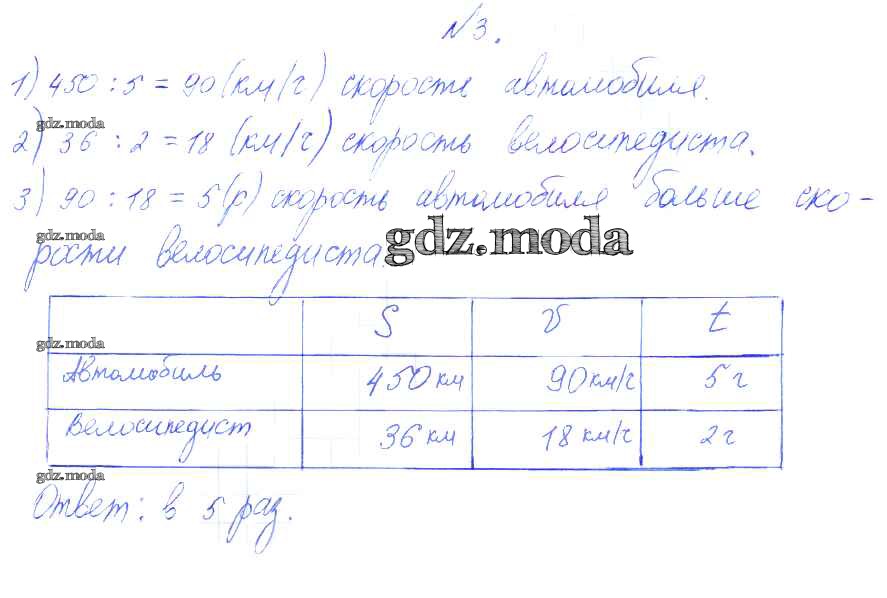 №3.
1) 450 : 5 = 90 (км/ч) скорость автомобиля.
gdz.moda
2) 36 : 2 = 18 (км/ч) скорость велосипедиста.
3) 90 : 18 = 5 (р) скорость автомобиля больше ско-
gdz.moda
рости велосипедиста.
gdz.moda
S v t
gdz.moda
Автомобиль 450 км 90 км/ч 5 ч
Велосипедист 36 км 18 км/ч 2 ч
gdz.moda
Ответ: в 5 раз.